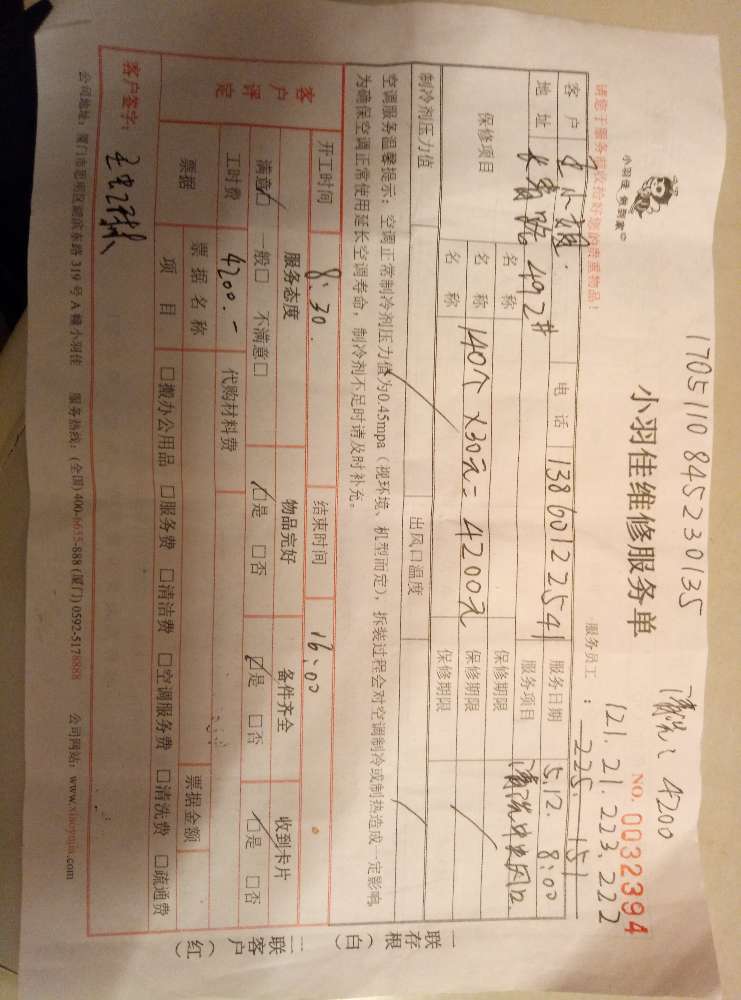 1705110845230135
清洗:4200
小羽佳 做到家
小羽佳维修服务单
NO. 0032394
请您于服务前收拾好您的贵重物品!
服务员工:
121.21.223.222
225.151
客户
电话 13860122541
服务日期 5.12. 8:00
地址 长青路492#
服务项目 清洗中央风口
保修项目
名称
保修期限
名称 140个×30元=4200元
保修期限
名称
保修期限
制冷剂压力值
出风口温度
空调服务温馨提示:空调正常制冷剂压力值为0.45mpa(视环境、机型而定),拆装过程会对空调制冷或制热造成一定影响,
为确保空调正常使用延长空调寿命,制冷剂不足时请及时补充。
开工时间 8:30.
结束时间 16:00
客户评定
服务态度
物品完好
备件齐全
收到卡片
满意☑ 一般□ 不满意□
☑是 □否
☑是 □否
☑是 □否
工时费 4200.-
代购材料费
票据
票据名称
票据金额
项目
□搬办公用品 □服务费 □清洁费 □空调服务费 □清洗费 □疏通费
客户签字:
公司地址:厦门市思明区湖滨东路319号A幢小羽佳 服务热线:(全国)400-6655-888 (厦门)0592-5178888 公司网站:www.xiaoyujia.com
一联存根(白)
二联客户(红)